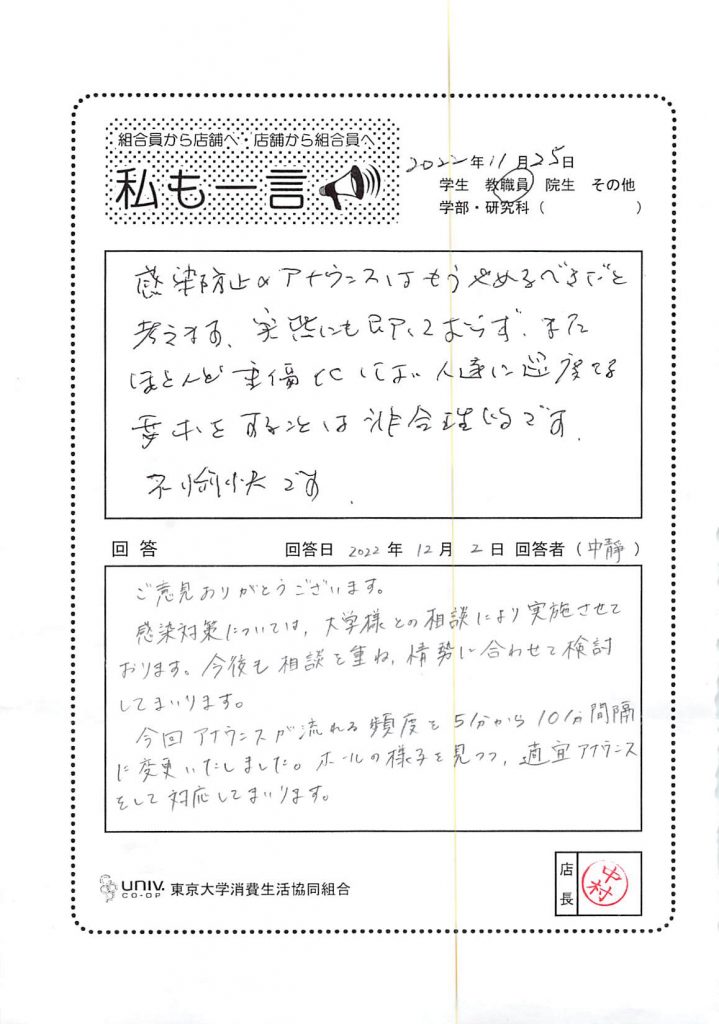 組合員から店舗へ・店舗から組合員へ
私も一言
2022年11月25日
学生 教職員 院生 その他
学部・研究科( )
感染防止のアナウンスはもうやめるべきだと
考えます。実態にも即しておらず、また
ほとんど重傷化しない人達に過度な
要求をすることは非合理的です。
不愉快です。
回答 回答日 2022年12月2日 回答者(中靜)
ご意見ありがとうございます。
感染対策については、大学様との相談により実施させて
おります。今後も相談を重ね、情勢に合わせて検討
してまいります。
今回アナウンスが流れる頻度を5分から10分間隔
に変更いたしました。ホールの様子を見つつ、適宜アナウンス
をして対応してまいります。
UNIV. CO-OP 東京大学消費生活協同組合
店長
中村